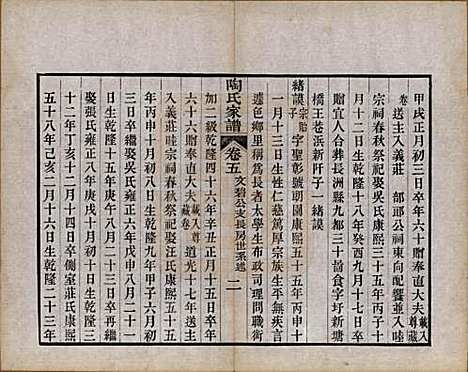 甲戌正月初三日卒年六十贈奉直大夫載入尊藏
卷送主入義莊 部郎公祠東向配饗並入睦
宗祠春秋祭祀娶吳氏康熙三十五年丙子十
月十二日生乾隆十八年癸酉九月十七日卒
贈宜人合葬長洲縣九都三十圖官字圩新塘
橋王巷浜新阡子一緒謨
緒謨宗貽字聖彰號朗園康熙五十五年丙申十
一月十三日生性仁慈篤厚宗族生平無疾言
遽色鄉里稱為長者太學生布政司理問職銜
陶氏家譜
卷五
文碧公支長房世系述
二
加二級乾隆四十六年辛丑正月十五日卒年
六十六贈奉直大夫載入尊藏卷道光十七年送主
入義莊睦宗祠春秋祭祀娶汪氏康熙五十五
年丙申十月初八日生乾隆九年甲子六月初
三日卒繼娶吳氏雍正六年戊申八月二十一
日生乾隆四十七年壬寅八月二十三日卒再繼
娶張氏雍正八年庚戌十月初八日生乾隆三
十二年丁亥十二月十四日卒側室莊氏康熙
五十八年己亥二月十六日生乾隆二十三年